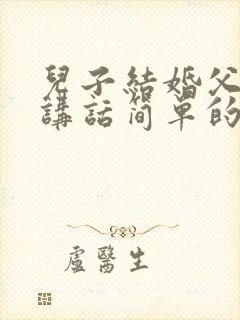 兒子結婚父
講話簡單的
盧醫生